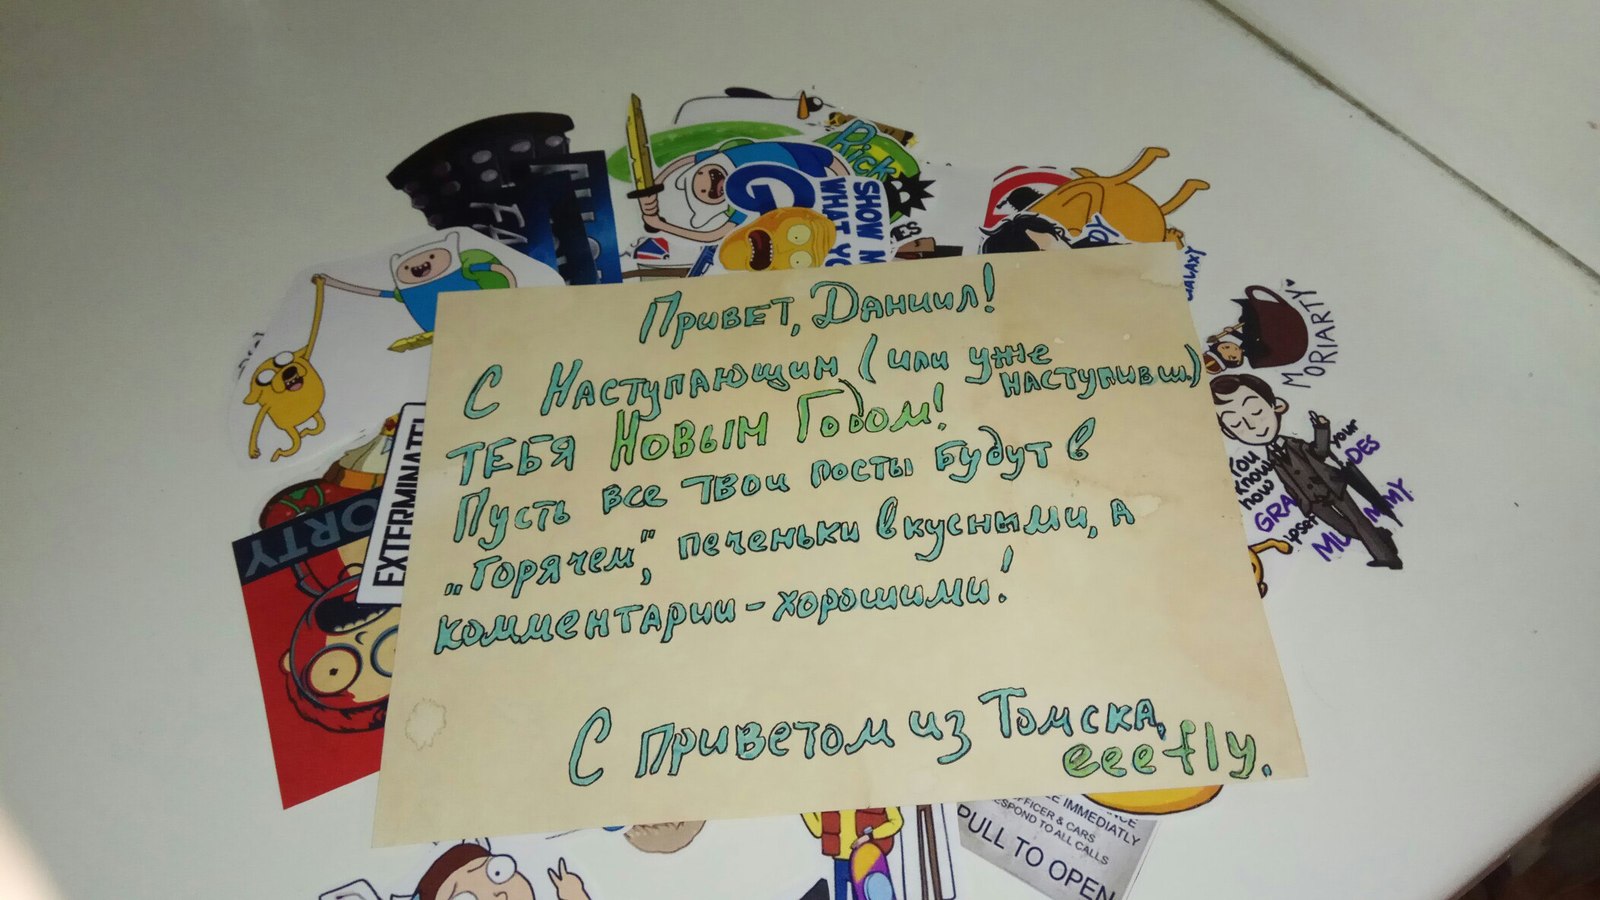 Rick
G
SHOW M
WHAT Y
FA
Привет, Даниил!
С Наступающим (или уже наступивш.)
тебя Новым Годом!
Пусть все твои посты будут в
„горячем“, печеньки вкусными, а
комментарии - хорошими!
С приветом из Томска,
eeefly.
EXTERMINATE
ORTY
GALAXY
MORIARTY
You
know
how
your
GRA
DES
MU
MMY
IMMEDIATLY
OFFICER & CARS
RESPOND TO ALL CALLS
PULL TO OPEN